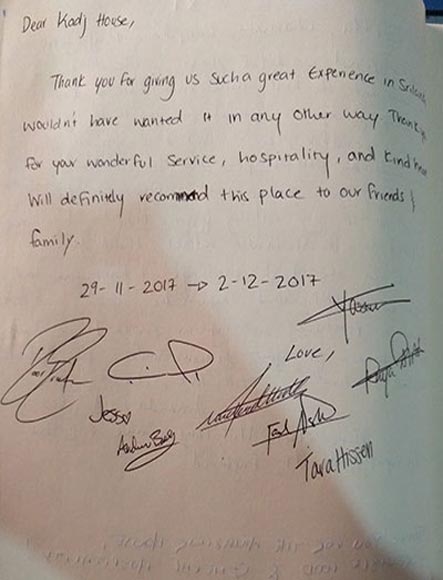 Dear Kadj House,
Thank you for giving us such a great Experience in
wouldn't have wanted it in any other way.
for your wonderful service, hospitality, and kind
Will definitely recommend this place to our friends &
family.
29-11-2017 → 2-12-2017
Love,
Jess
Tara Hissen